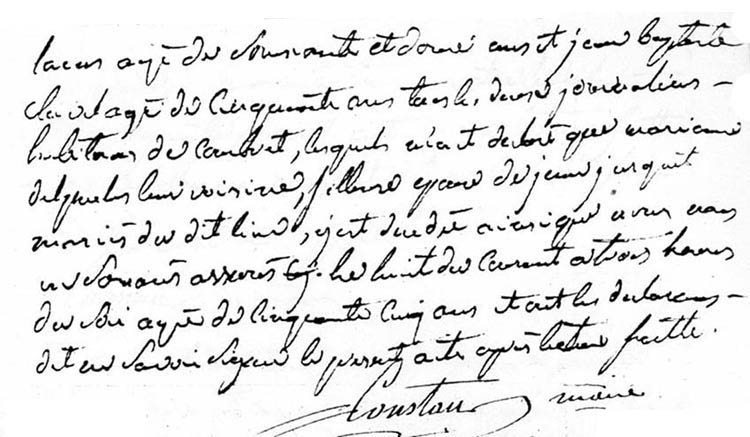 agé de Soixante et douze ans et jean baptiste
agé de Cinquante ans tous les deux journaliers
habitans de lesquels m'ont declaré que mariane
leur voisine, fileuse epouse de jean
mariés du dit lieu, est décédé ainsi que nous nous
en sommes assurés le huit du Courant a trois heures
du soir agée de Cinquante Cinq ans et ont les declarans
dit ne Savoir Signer le present acte après lecture faitte.
Constan maire